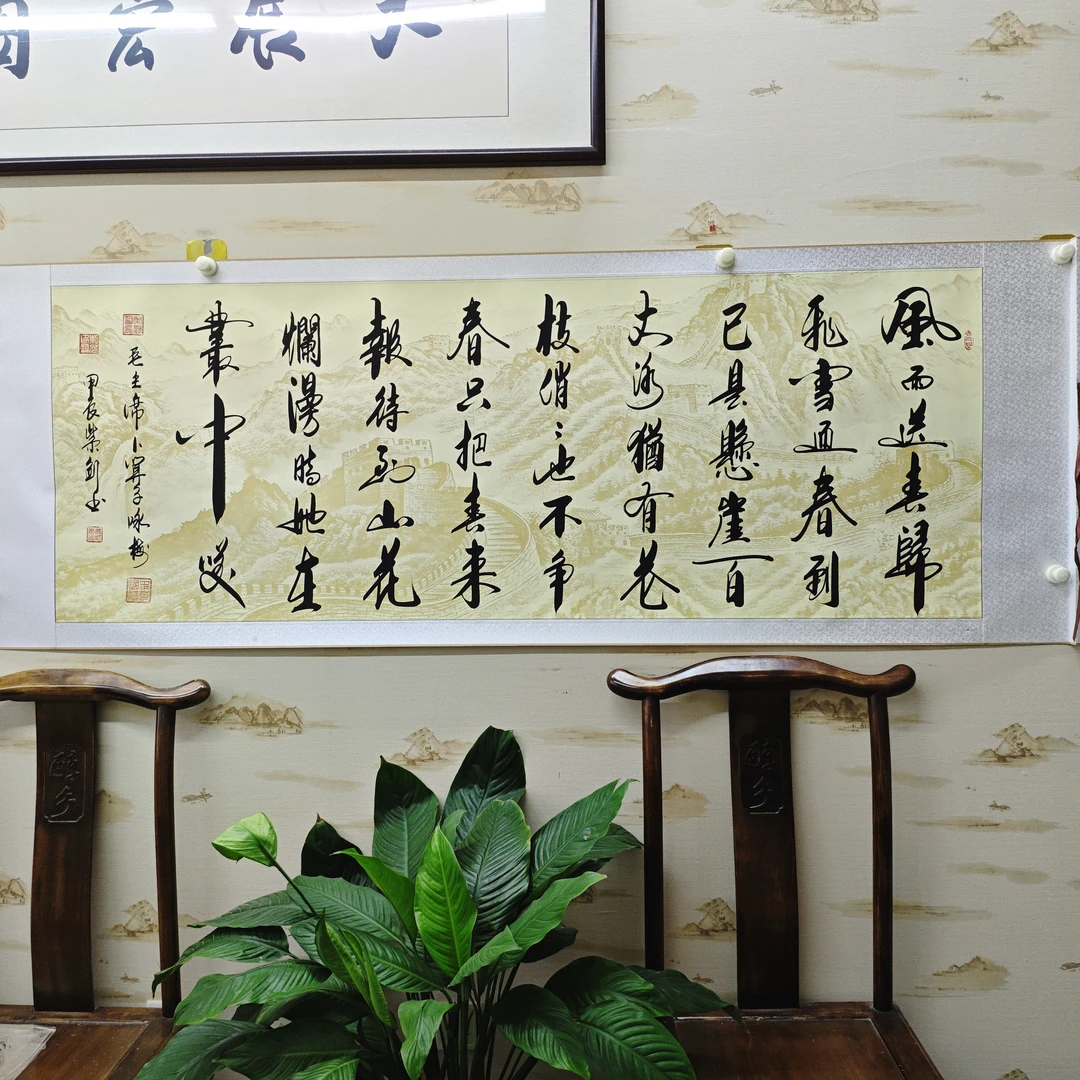 大展宏圖
風雨送春歸
飛雪迎春到
已是懸崖百
丈冰猶有花
枝俏〻也不爭
春只把春來
報待到山花
爛漫時她在
叢中笑
毛主席卜算子咏梅
甲辰榮釗書
醉乡
醉乡